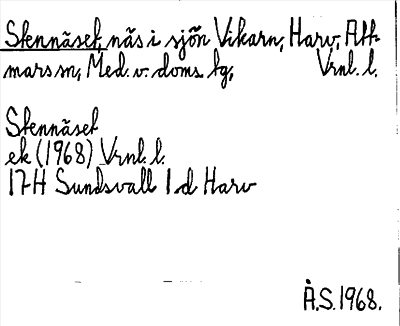 Stennäset, näs i sjön Vikarn, Harv, Att-
mars sn, Med. v. doms. tg, Vrnl. l.
Stennäset
ek (1968) Vrnl. l.
17H Sundsvall 1d Harv
Å.S. 1968.